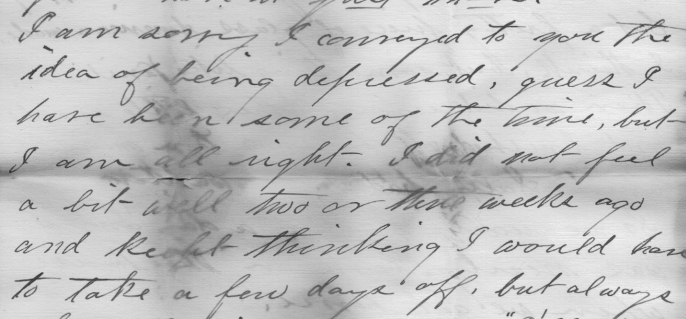 I am sorry I conveyed to you the
idea of being depressed, guess I
have been some of the time, but
I am all right. I did not feel
a bit well two or three weeks ago
and kept thinking I would have
to take a few days off, but always